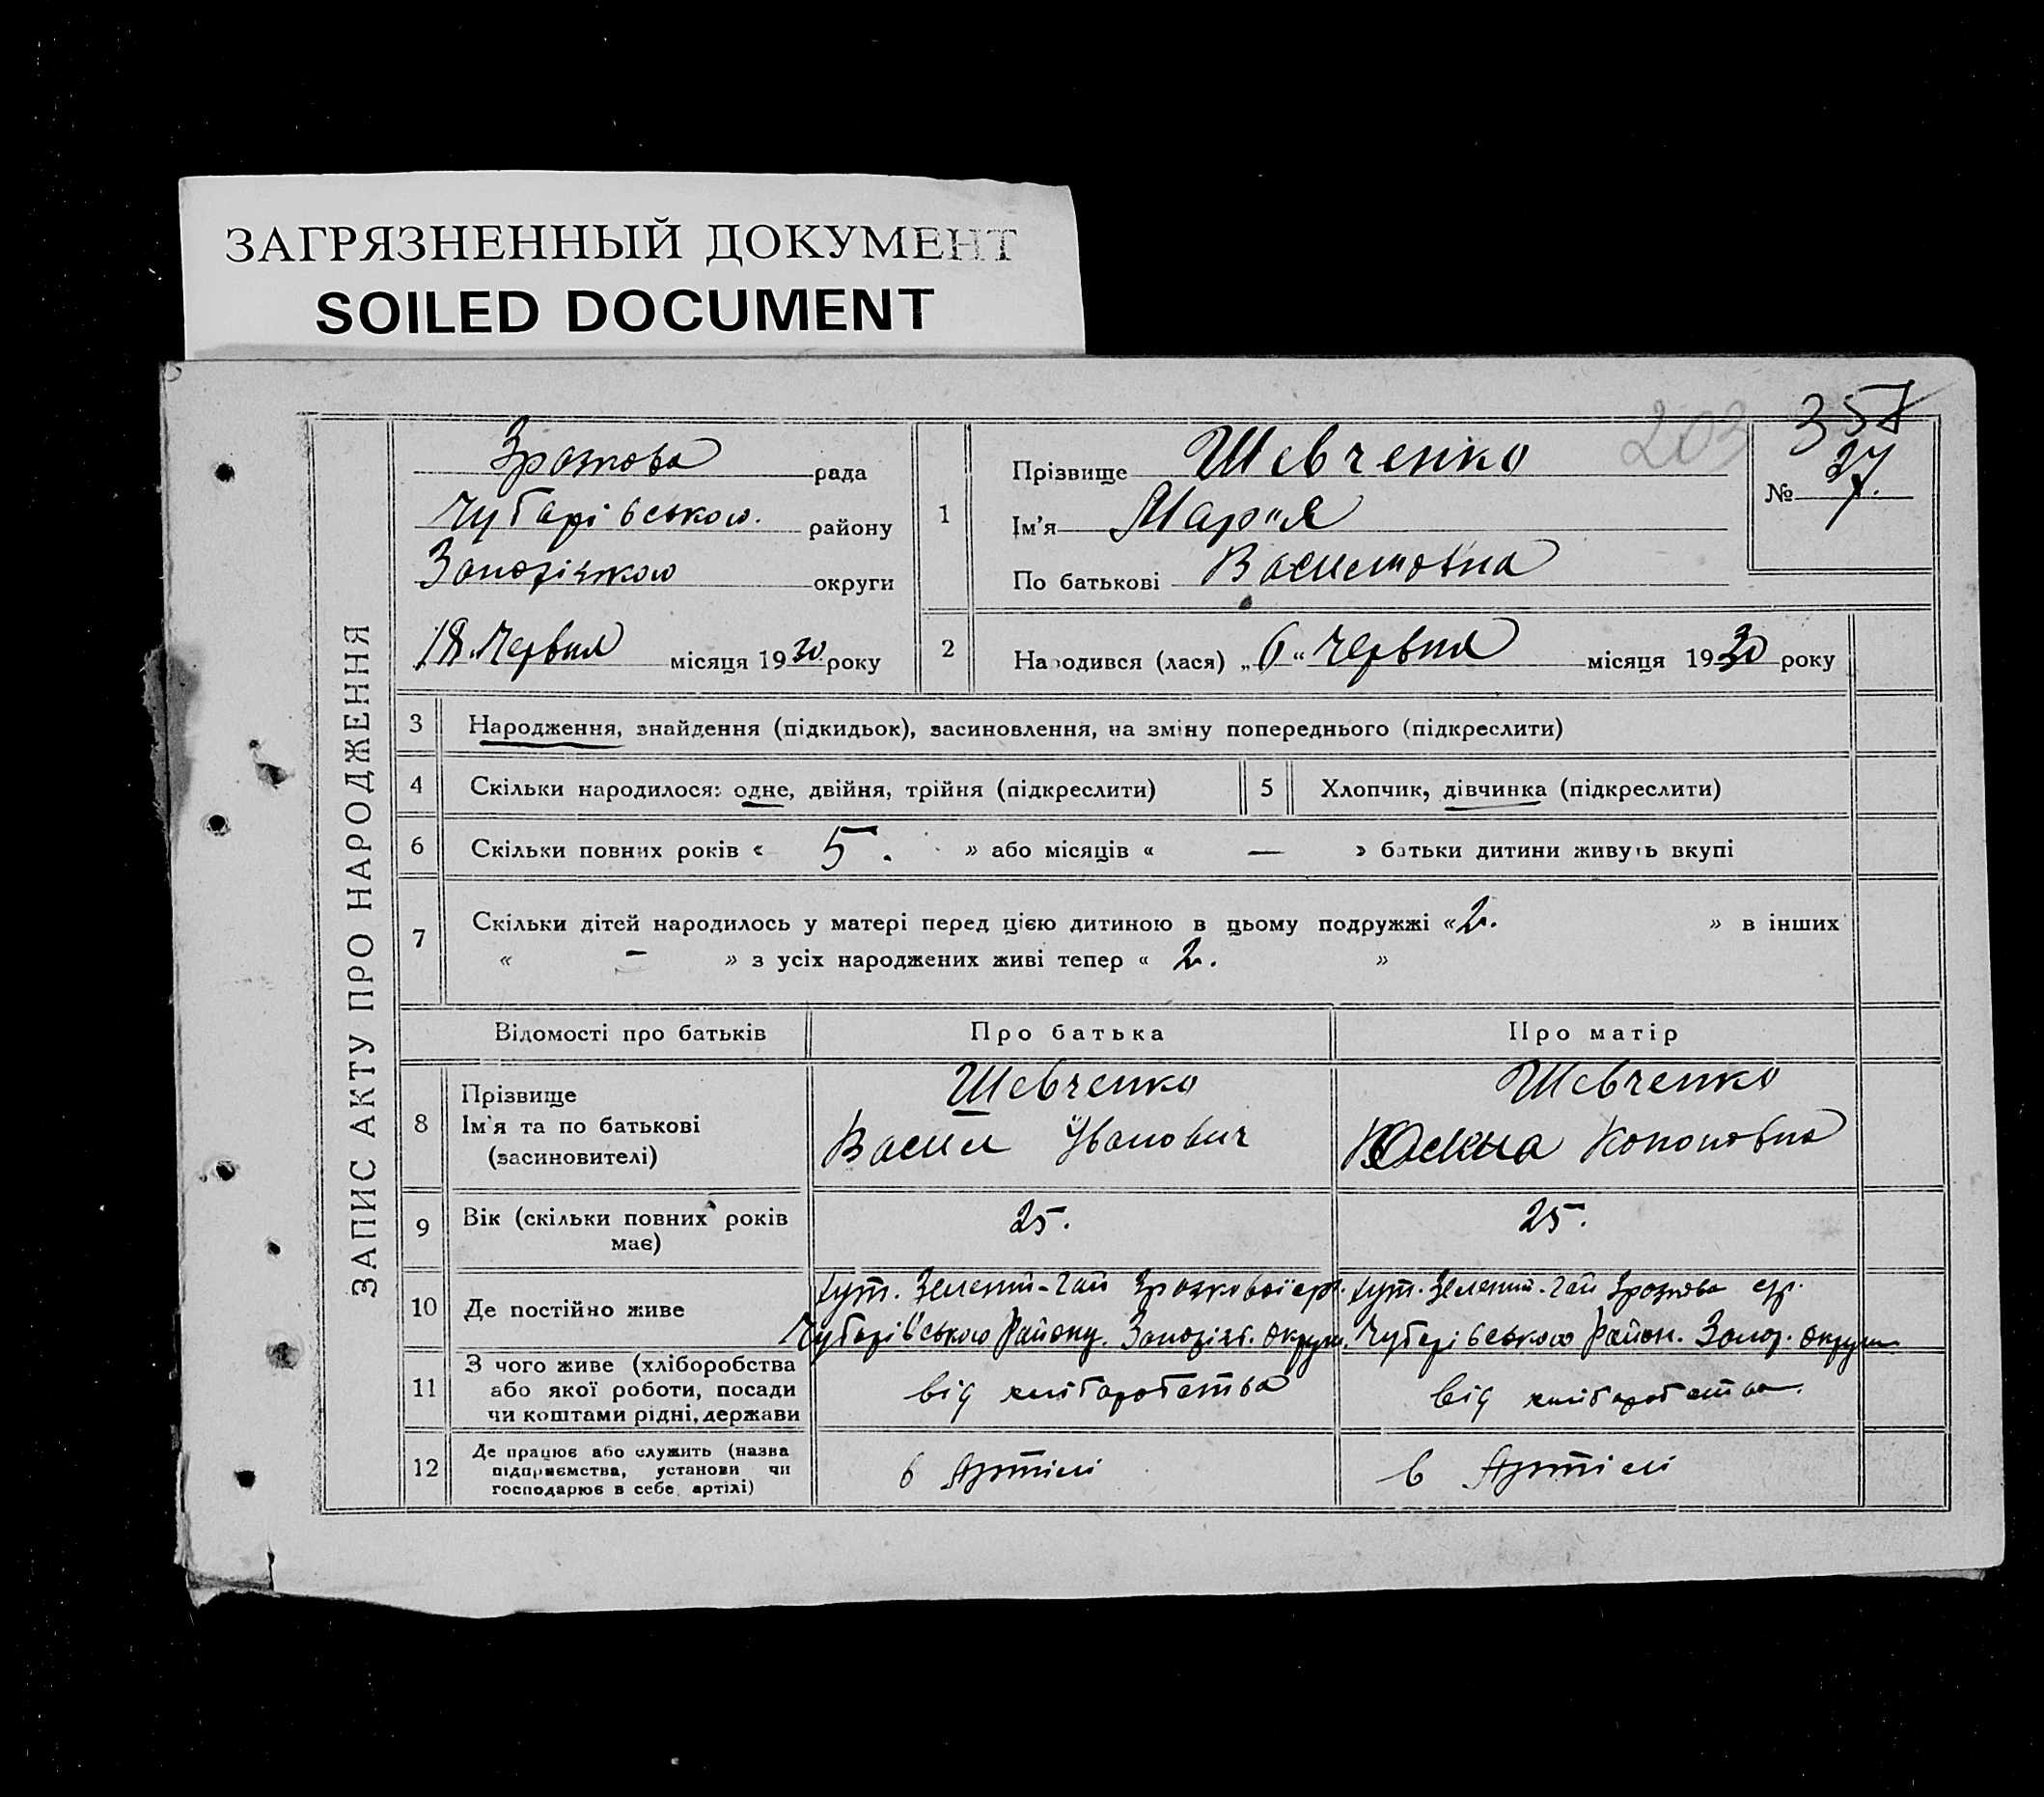 ЗАГРЯЗНЕННЫЙ ДОКУМЕНТ
SOILED DOCUMENT
203
ЗАПИС АКТУ ПРО НАРОДЖЕННЯ
рада
Чубарівського району
округи
18 Червня місяця 1930 року
1
Прізвище Шевченко
Ім'я Марія
По батькові
№ 27.
2
Народився (лася) „6“ Червня місяця 1930 року
3 Народження, знайдення (підкидьок), засиновлення, на зміну попереднього (підкреслити)
4 Скільки народилося: одне, двійня, трійня (підкреслити) 5 Хлопчик, дівчинка (підкреслити)
6 Скільки повних років « 5. » або місяців « — » батьки дитини живуть вкупі
7 Скільки дітей народилось у матері перед цією дитиною в цьому подружжі «2. » в інших
« – » з усіх народжених живі тепер « 2. »
Відомості про батьків Про батька Про матір
8 Прізвище Шевченко Шевченко
Ім'я та по батькові Василь Іванович Кононовна
(засиновителі)
9 Вік (скільки повних років має) 25. 25.
10 Де постійно живе хут. Зелений-Гай хут. Зелений-Гай
Чубарівського Району. Чубарівського Район. Запор. округи
11 З чого живе (хліборобства або якої роботи, посади чи коштами рідні, держави від хліборобства від хліборобства.
12 Де працює або служить (назва підприємства, установи чи господарює в себе, артілі) в Артілі в Артілі